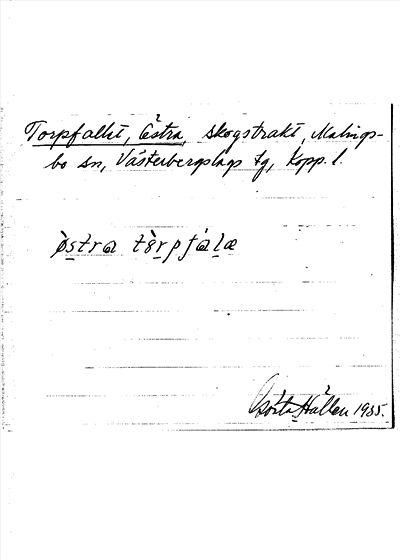 Torpfallet, Östra, skogstrakt, Malings-
bo sn, Västerbergslags fg, Kopp. l.
östra tòrpfálæ
Hállen 1935.